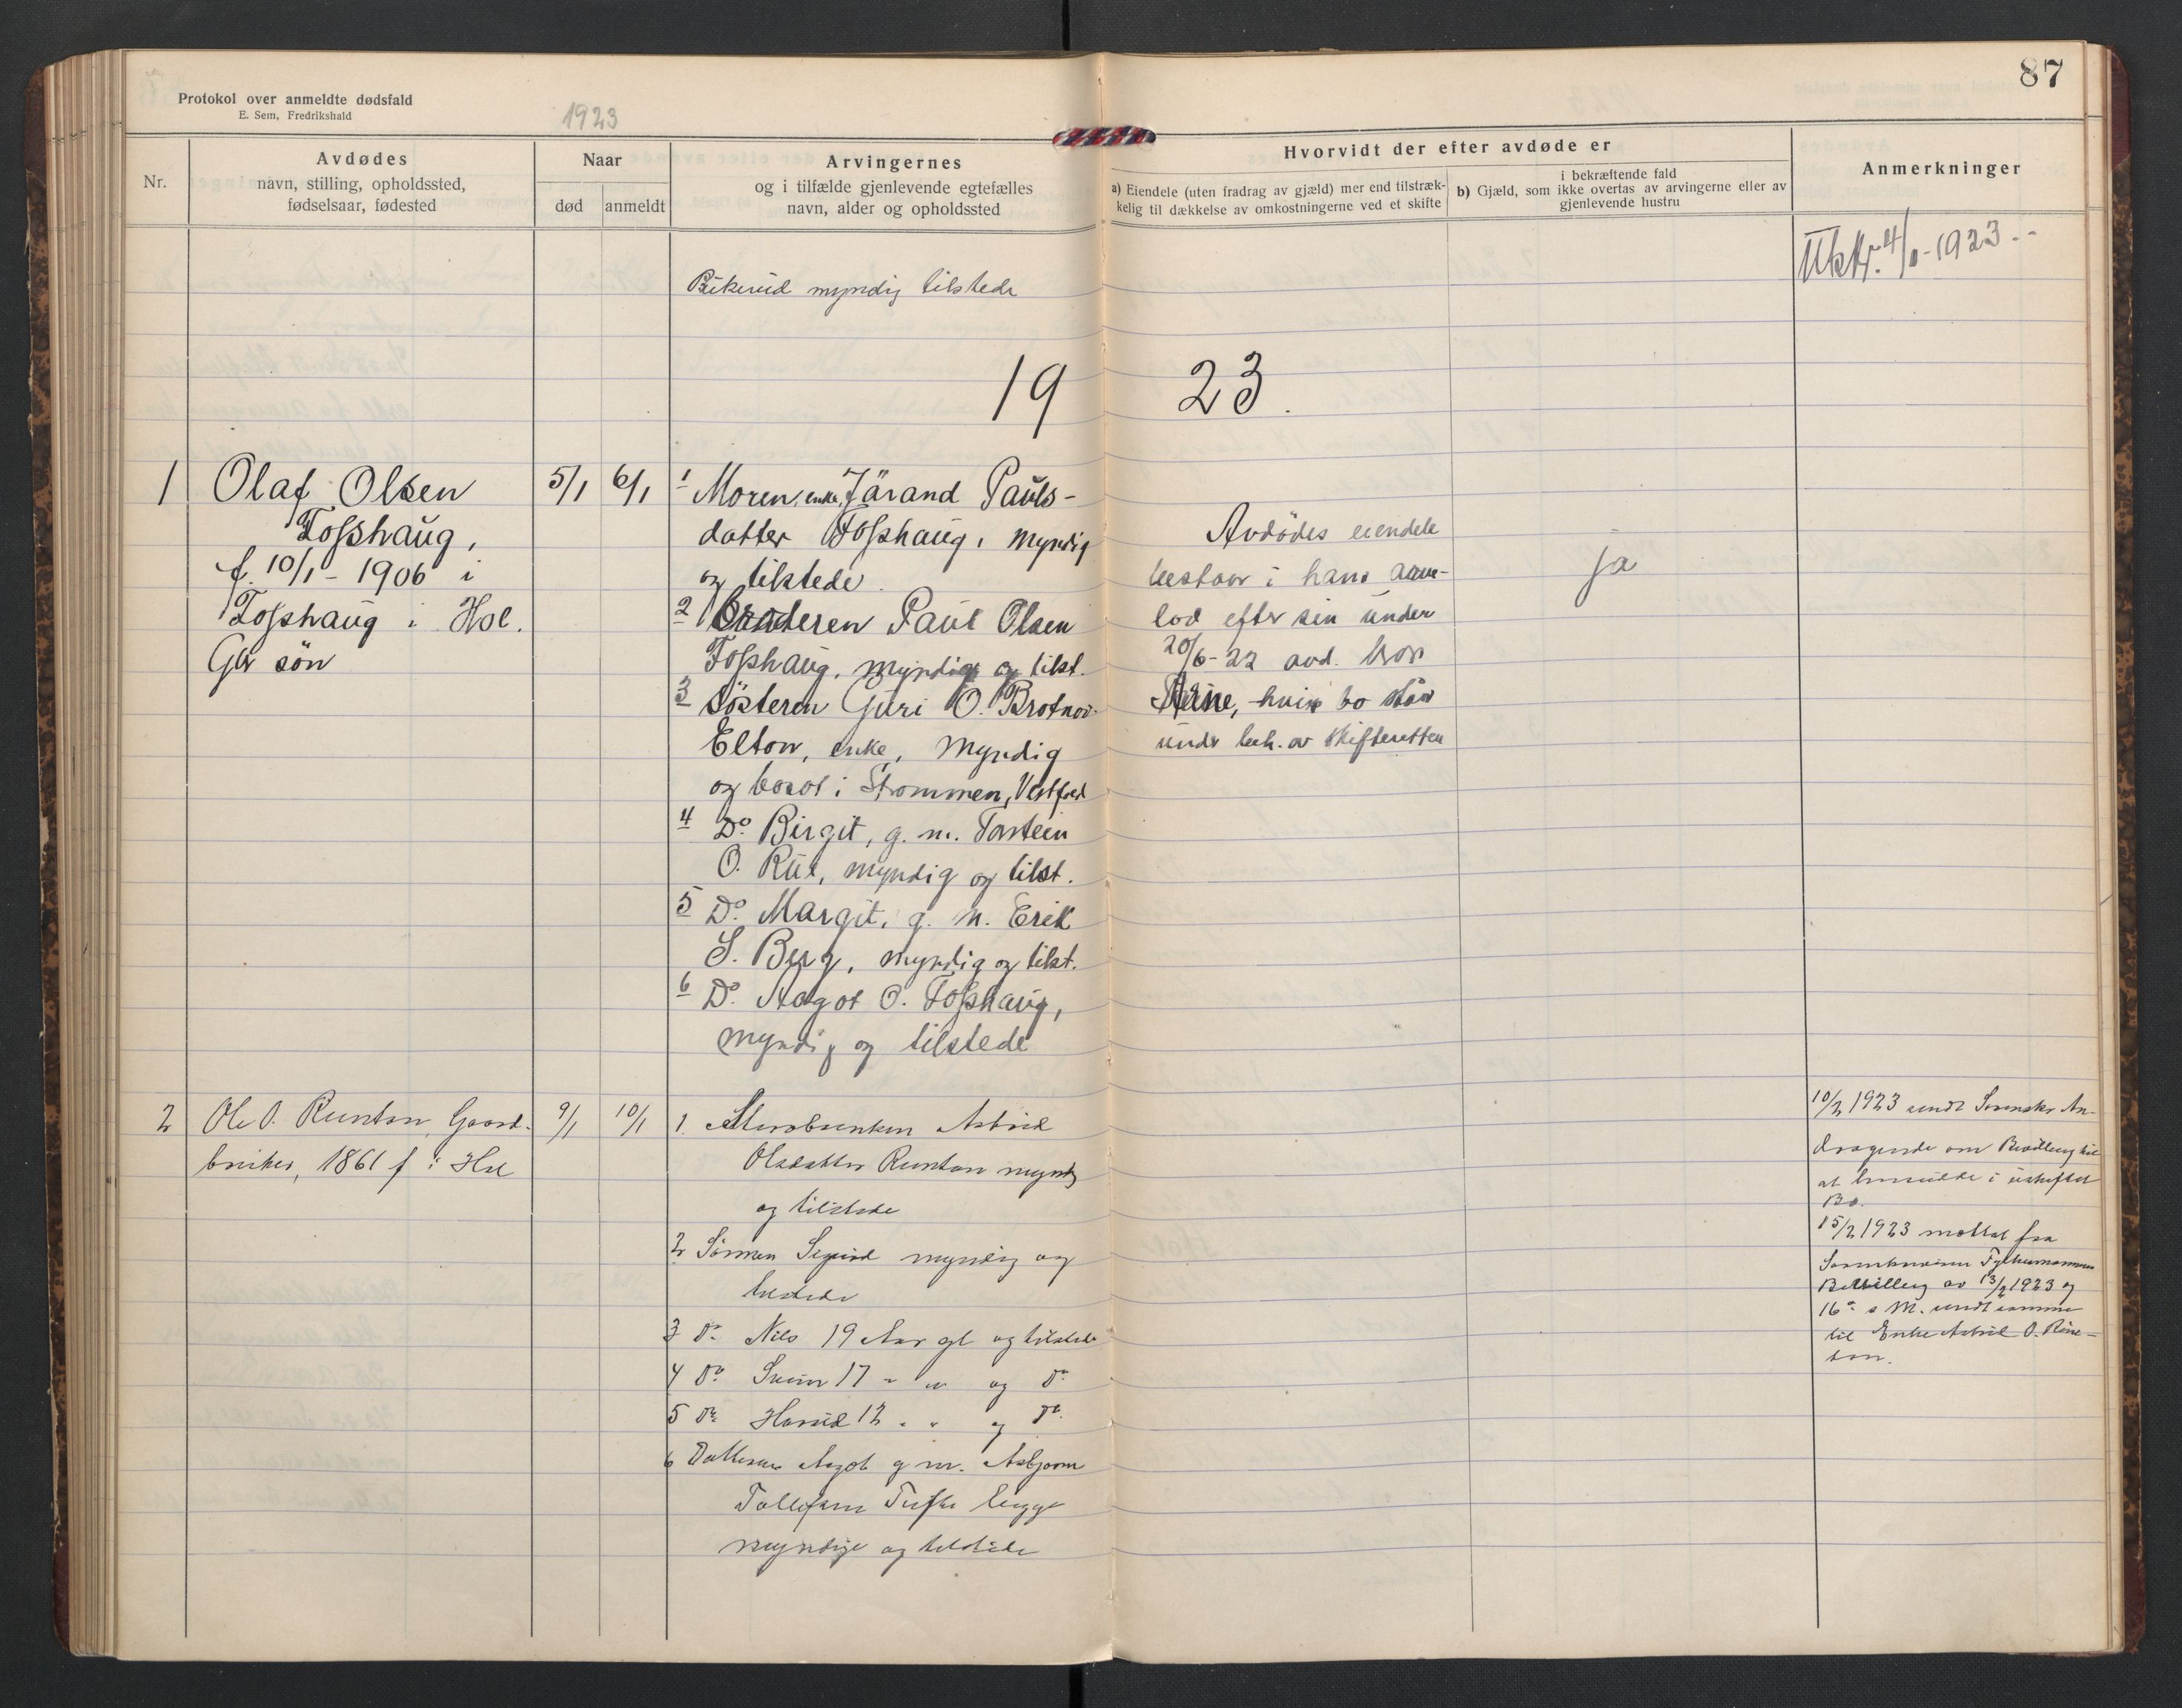 87
Protokol over anmeldte dødsfald
E. Sem, Fredrikshald
1923
Nr.
Avdødes
navn, stilling, opholdssted,
fødselsaar, fødested
Naar
død
anmeldt
Arvingernes
og i tilfælde gjenlevende egtefælles
navn, alder og opholdssted
Hvorvidt der efter avdøde er
a) Eiendele (uten fradrag av gjæld) mer end tilstræk-
kelig til dækkelse av omkostningerne ved et skifte
i bekræftende fald
b) Gjæld, som ikke overtas av arvingerne eller av
gjenlevende hustru
Anmerkninger
myndig tilstede
1923
19 23.
1
Olaf Olsen
Fosshaug,
f. 10/1 - 1906 i
Fosshaug i Hol.
Gbr søn
5/1
6/1
1 Moren, enke, Järand Pauls-
datter Fosshaug, myndig
og tilstede.
2 Broderen Paul Olsen
Fosshaug, myndig og tilst.
3 Søsteren Guri O. Brotnov-
Elton, enke, myndig
og bosat i Strømmen, Vestfold
4 Do. Birgit, g. m. Torstein
O. Rue, myndig og tilst.
5 Do. Margit, g. m. Erik
S. Berg, myndig og tilst.
6 Do. Aagot O. Fosshaug,
myndig og tilstede
Avdödes eiendele
bestaar i hans
lod efter sin under
20/6-22 avd. bror
hvis bo står
under beh. av skifteretten
ja
2
Ole O. Runton, Gaard-
bruker, 1861 f i Hol
9/1
10/1
1. Astrid
Olsdatter Runton myndig
og tilstede
2 Sønnen Sigurd myndig og
tilstede
3 Do. Nils 19 Aar gl og tilstede
4 Do. Svein 17 " " og Do.
5 Do. Harald 12 " " og Do.
6 Datteren Aagot g m. Asbjørn
Tollefsen Tufte begge
myndige og tilstede
10/2 1923 sendt An-
dragende om Bevilling til
at i uskiftet
Bo.
15/2 1923 mottat fra
Fylkesmannens
Bevilling av 13/2 1923 og
16de s M. sendt samme
til Enke Astrid O. Run-
ton.